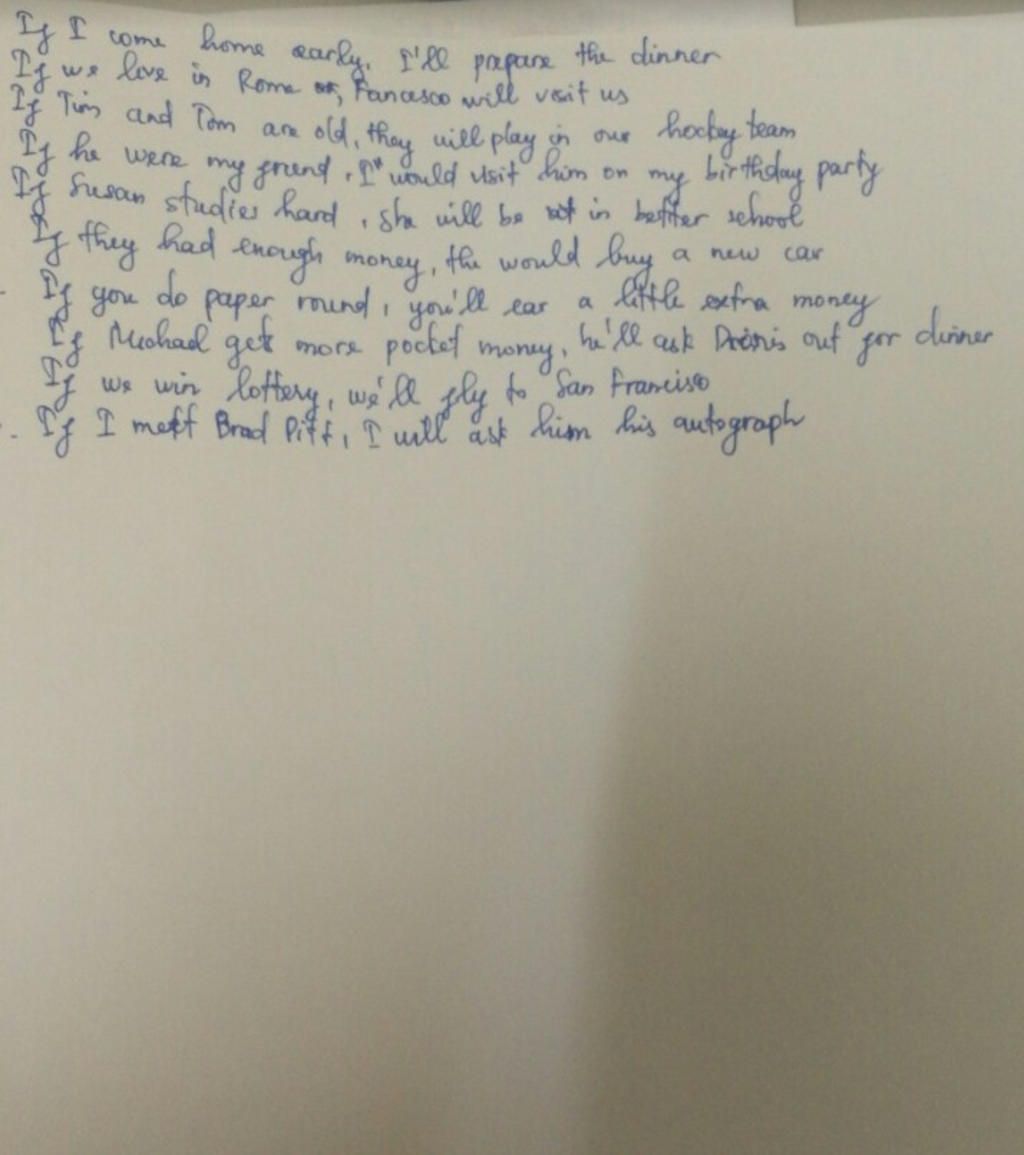 If I come home early, I'll prepare the dinner
If we live in Rome, Fancesco will visit us
If Tim and Tom are old, they will play in our hockey team
If he were my friend, I would visit him on my birthday party
If Susan studies hard, she will be in better school
If they had enough money, the would buy a new car
If you do paper round, you'll ear a little extra money
If Michael gets more pocket money, he'll ask out for dinner
If we win lottery, we'll fly to San Francisco
If I meet Brad Pitt, I will ask him his autograph